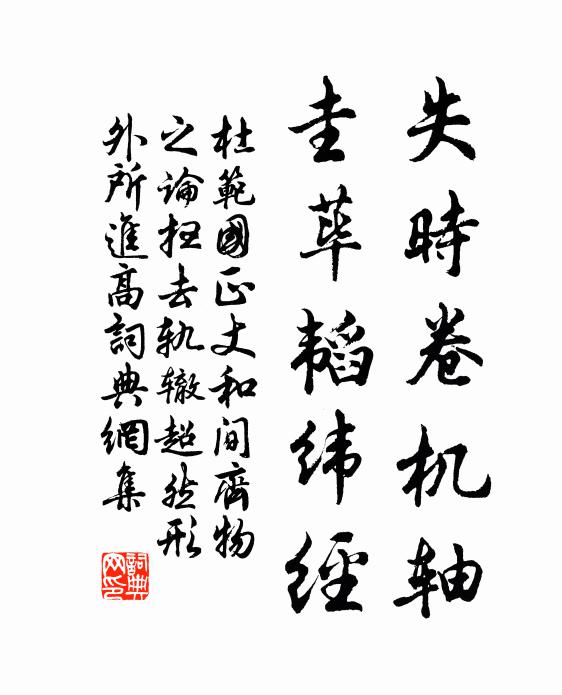 失時卷机轴
圭荜韬纬經
杜範國正丈和间齊物
之論抂去轨辙超然形
外所進高詞典網集
詞典网印